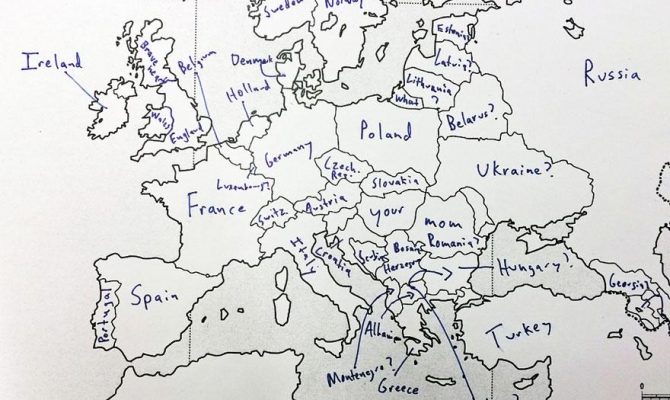 Sweden
Norway
Estonia
Latvia?
Lithuania
what?
Russia
Ireland
Brave
heart
Belgium
Denmark
Holland
Wales
England
Poland
Belarus?
Germany
Luxembourg?
Czech.
Rep.
Slovakia
Ukraine?
France
Switz.
Austria
your
mom
Romania?
Italy
Croatia
Serbia
Bosnia
Herzegov
Hungary?
Georgia?
Portugal
Spain
Albania
Turkey
Montenegro?
Greece
?
0